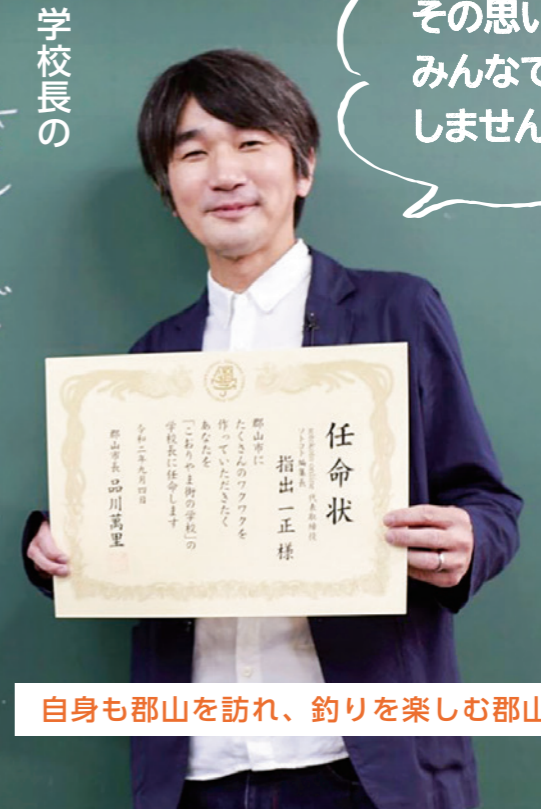 学校長の
その思い
みんなで
しません
任命状
代表取締役
ソトコト編集長
指出 一正 様
郡山市に
たくさんのワクワクを
作っていただきたく
あなたを
「こおりやま街の学校」の
学校長に任命します
令和二年九月四日
郡山市長 品川萬里
自身も郡山を訪れ、釣りを楽しむ郡山